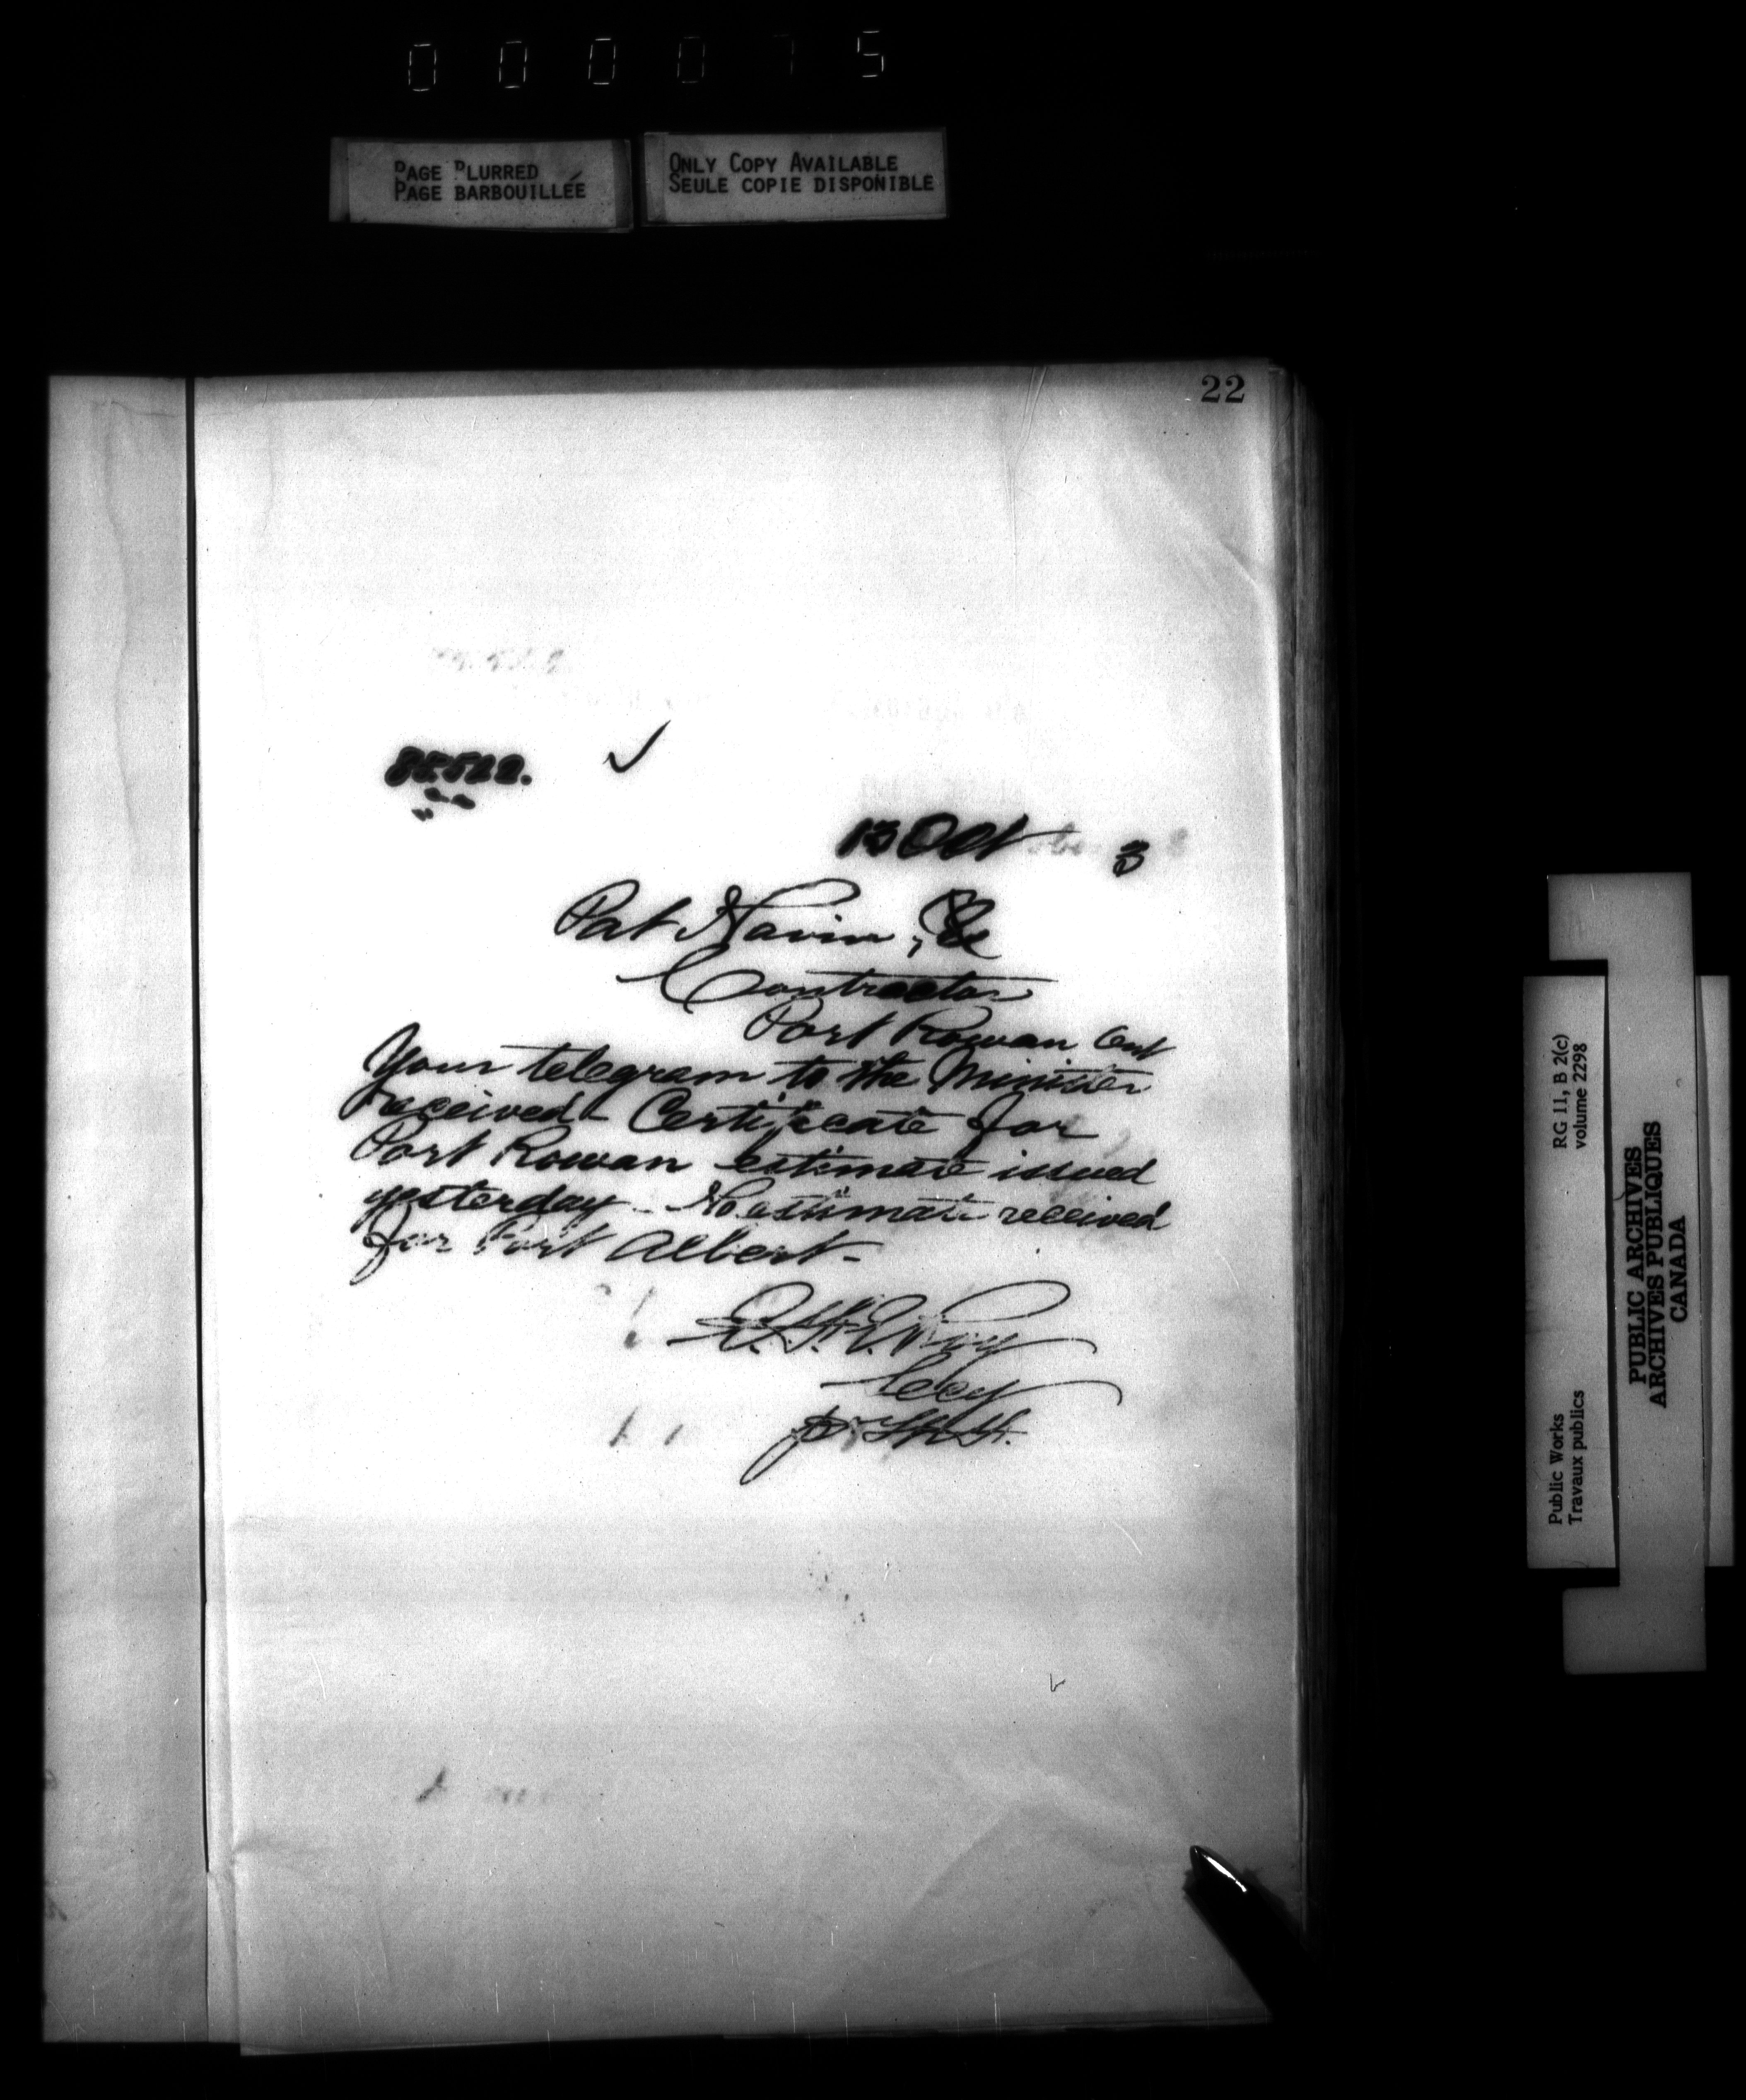 0 0 0 0 7 5
PAGE BLURRED
PAGE BARBOUILLÉE
ONLY COPY AVAILABLE
SEULE COPIE DISPONIBLE
22
13 Oct 3
Pat Navin,
Contractor
Port Rowan Ont
Your telegram to the Minister
received - Certificate for
Port Rowan estimate issued
yesterday - No estimate received
for Port Albert -
Secy
RG 11, B 2(c)
volume 2298
Public Works
Travaux publics
PUBLIC ARCHIVES
ARCHIVES PUBLIQUES
CANADA